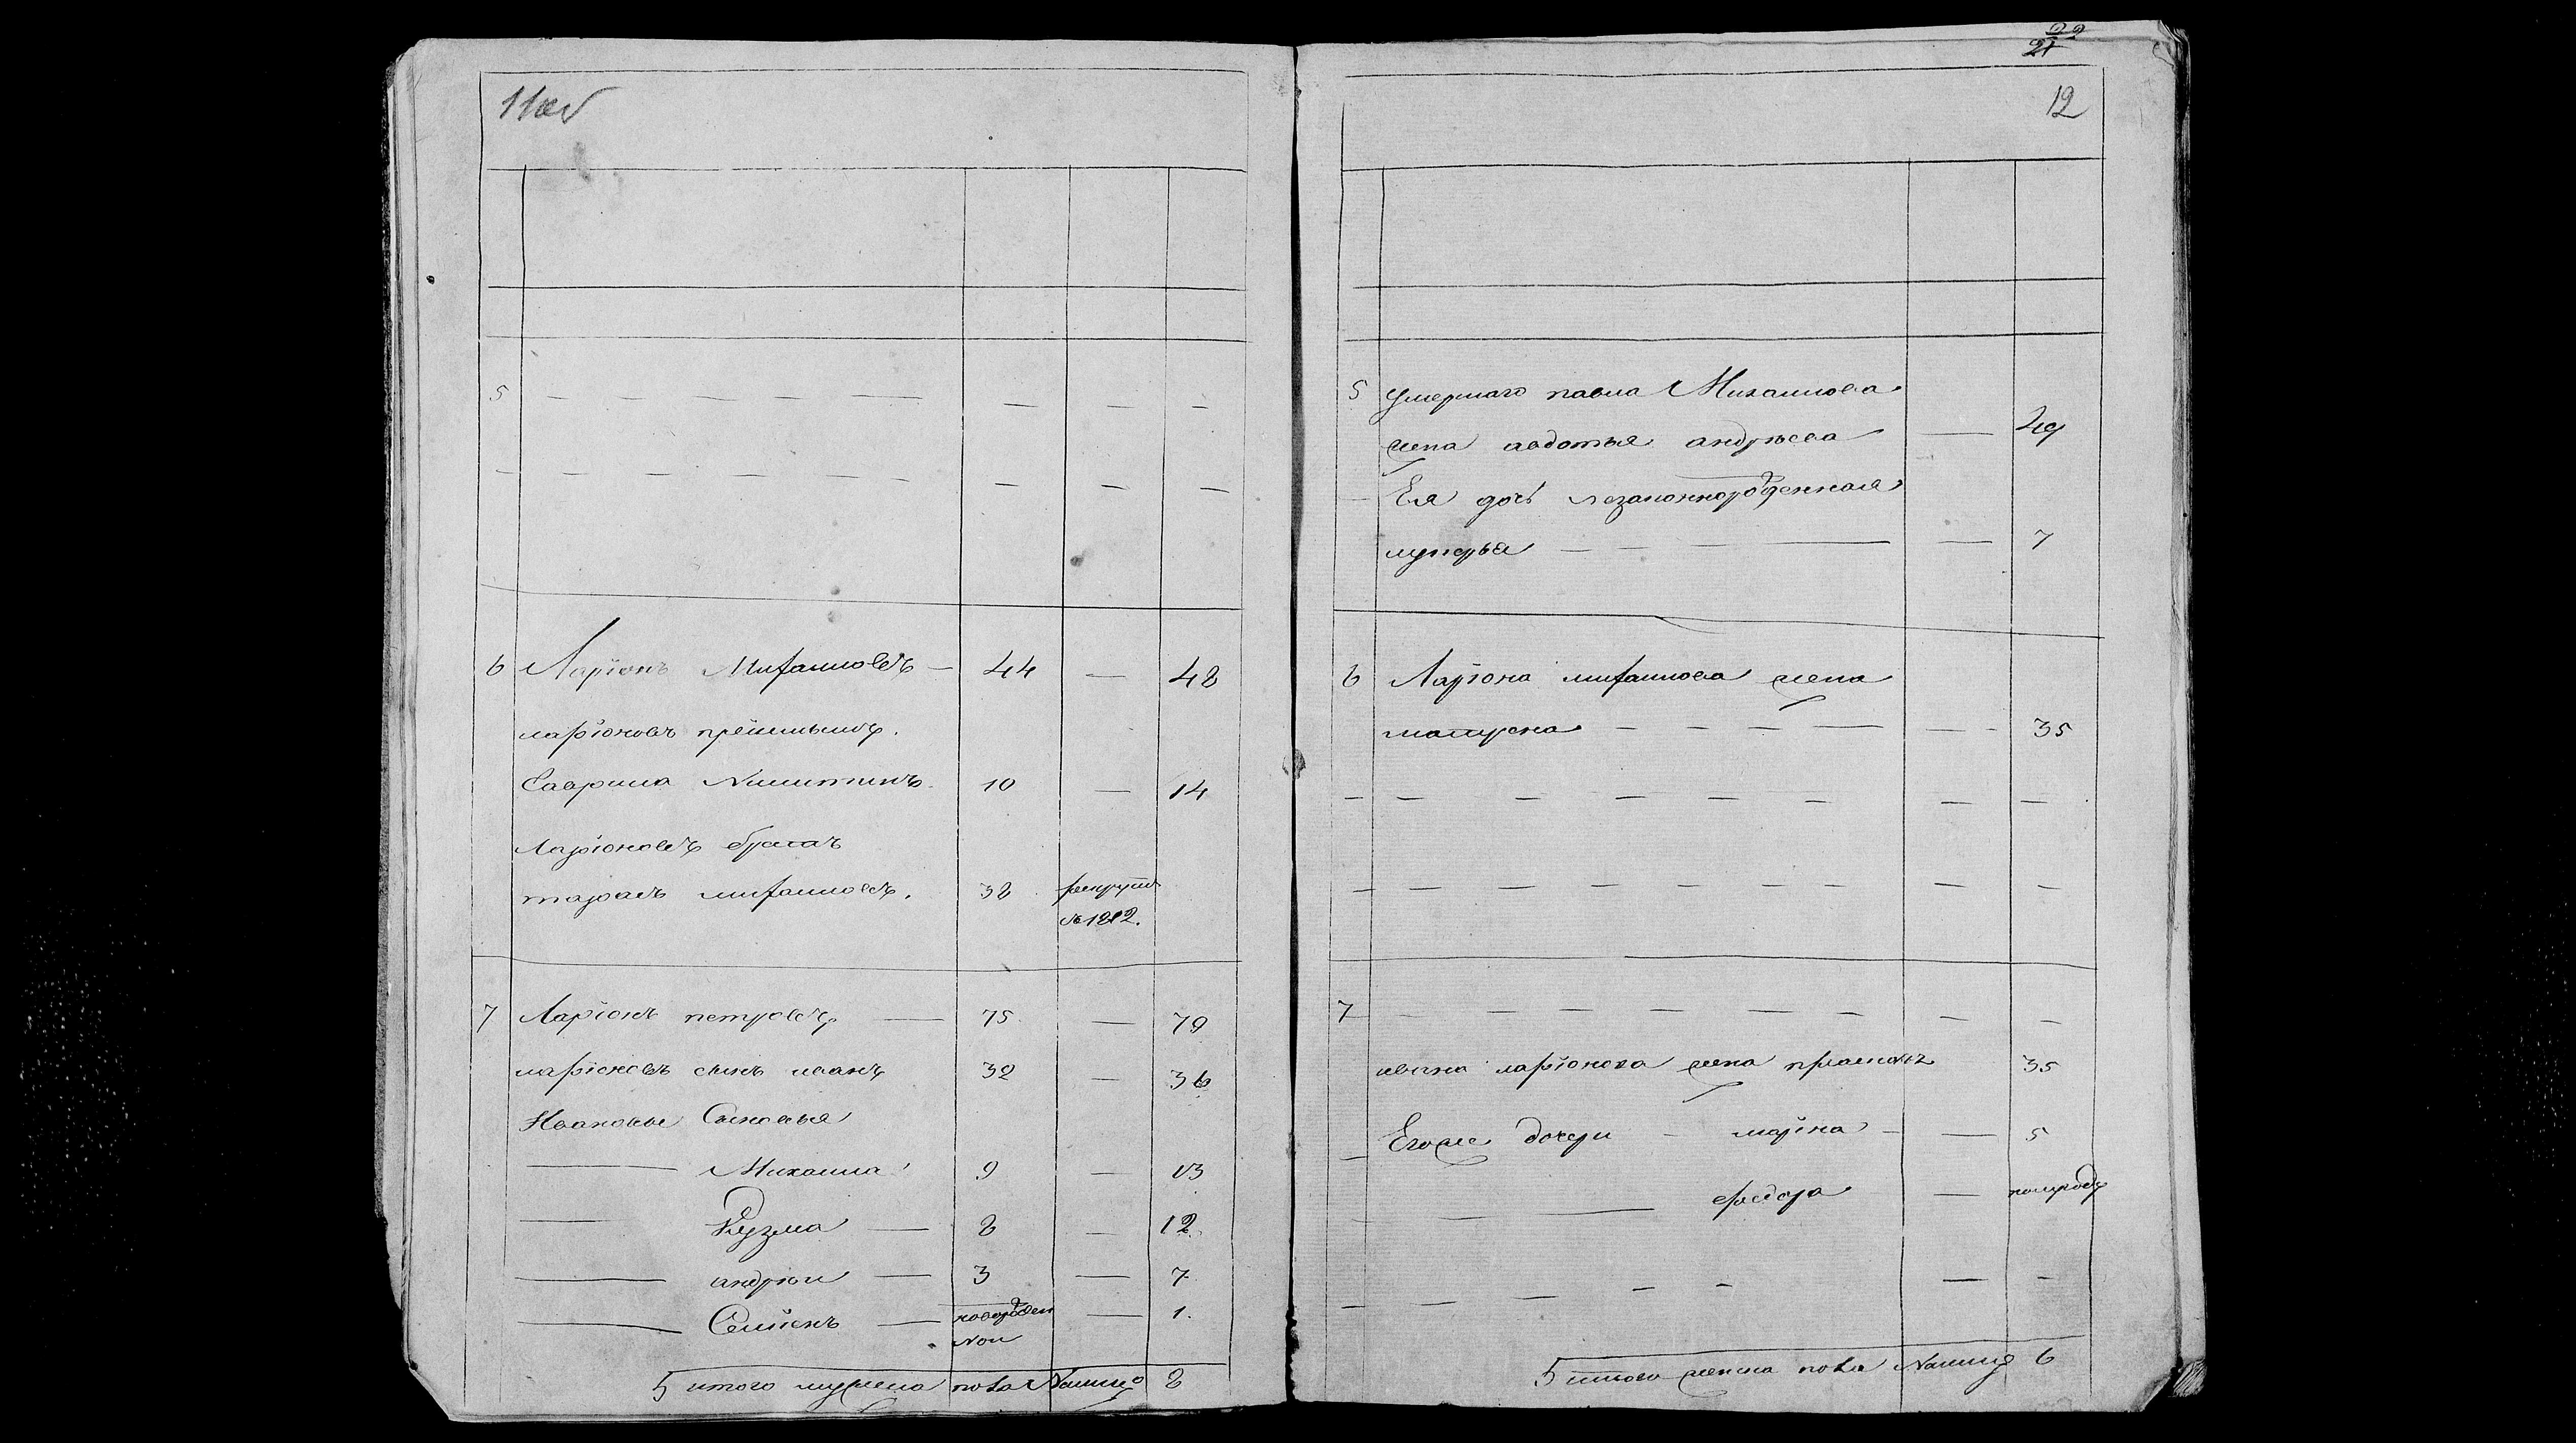 11об
5
6 Ларіонъ Михаиловъ 44 — 48
ларіоновъ приемышъ
Гаврила Никитинъ 10 — 14
Ларіоновъ братъ
тарасъ михаиловъ. 38 рекрутъ
въ 1812.
7 Ларіонъ петровъ — 75 — 79
ларіоновъ сынъ иванъ 32 — 36
Ивановы Сыновья
Михаила 9 — 13
Кузма — 8 — 12
андреи — 3 — 7
Семіонъ — новорожден — 1.
нои
итого мужеска пола Налицо 8
22
21
12
5 умершаго павла Михаилова
жена авдотья андреева — 49
Ея дочь незаконнорожденная
лукерья — 7
6 Ларіона михаилова жена
— 35
7
ивана ларіонова жена 35
Егоже дочери — маріна — 5
федора — полугоду
итого женска пола Налицо 6